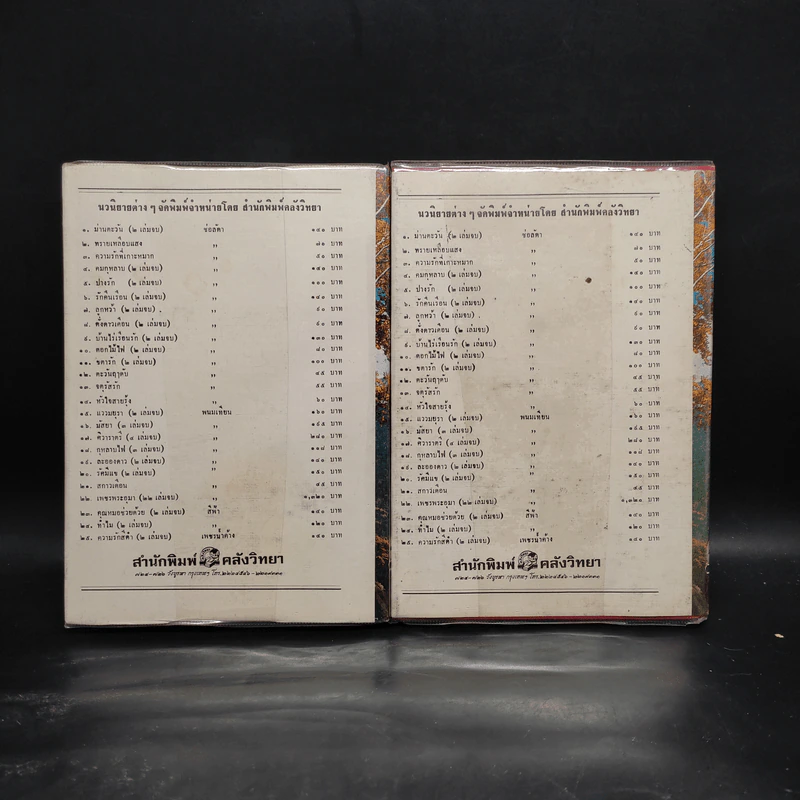 นวนิยายต่าง ๆ จัดพิมพ์จำหน่ายโดย สำนักพิมพ์คลังวิทยา
๑. ม่านตะวัน (๒ เล่มจบ) ช่อลัดา ๑๔๑ บาท
๒. ทรายเหลือบแสง " ๗๑ บาท
๓. ความรักที่เกาะหมาก " ๕๑ บาท
๔. คมกุหลาบ (๒ เล่มจบ) " ๑๕๑ บาท
๕. ปรงรัก (๒ เล่มจบ) " ๑๐๐ บาท
๖. รักคืนเรือน (๒ เล่มจบ) " ๑๔๐ บาท
๗. ลูกหว้า (๒ เล่มจบ) . " ๙๐ บาท
๘. ตั้งดาวเดือน (๒ เล่มจบ) " ๙๐ บาท
๙. บ้านไร่เรือนรัก (๒ เล่มจบ) " ๑๓๐ บาท
๑๐. ดอกไม้ไฟ (๒ เล่มจบ) " ๘๐ บาท
๑๑. ชดารัก (๒ เล่มจบ) " ๑๐๐ บาท
๑๒. ตะวันฤาดับ " ๔๕ บาท
๑๓. จตุรัสรัก " ๕๕ บาท
๑๔. หัวใจสายรุ้ง " ๖๐ บาท
๑๕. แววมยุรา (๒ เล่มจบ) พนมเทียน ๑๖๐ บาท
๑๖. มัสยา (๓ เล่มจบ) " ๑๙๕ บาท
๑๗. ศิวาราตรี (๔ เล่มจบ) " ๒๘๐ บาท
๑๘. กุหลาบไฟ (๓ เล่มจบ) " ๑๑๔ บาท
๑๙. ละอองดาว (๒ เล่มจบ) " ๑๔๐ บาท
๒๐. รัศมีแข (๒ เล่มจบ) " ๑๕๐ บาท
๒๑. สกาวเดือน " ๔๕ บาท
๒๒. เพชรพระอุมา (๒๒ เล่มจบ) " ๑,๓๒๐ บาท
๒๓. คุณหมอช่วยด้วย (๒ เล่มจบ) สีฟ้า ๑๔๐ บาท
๒๔. ทำไม (๒ เล่มจบ) " ๑๒๐ บาท
๒๕. ความรักสีดำ (๒ เล่มจบ) เพชรน้ำค้าง ๑๔๑ บาท
สำนักพิมพ์ คลังวิทยา
นวนิยายต่าง ๆ จัดพิมพ์จำหน่ายโดย สำนักพิมพ์คลังวิทยา
๑. ม่านตะวัน (๒ เล่มจบ) ช่อลัดา ๑๔๑ บาท
๒. ทรายเหลือบแสง " ๗๑ บาท
๓. ความรักที่เกาะหมาก " ๕๑ บาท
๔. คมกุหลาบ (๒ เล่มจบ) " ๑๕๑ บาท
๕. ปรงรัก (๒ เล่มจบ) " ๑๐๐ บาท
๖. รักคืนเรือน (๒ เล่มจบ) " ๑๔๐ บาท
๗. ลูกหว้า (๒ เล่มจบ) . " ๙๐ บาท
๘. ตั้งดาวเดือน (๒ เล่มจบ) " ๙๐ บาท
๙. บ้านไร่เรือนรัก (๒ เล่มจบ) " ๑๓๐ บาท
๑๐. ดอกไม้ไฟ (๒ เล่มจบ) " ๘๐ บาท
๑๑. ชดารัก (๒ เล่มจบ) " ๑๐๐ บาท
๑๒. ตะวันฤาดับ " ๔๕ บาท
๑๓. จตุรัสรัก " ๕๕ บาท
๑๔. หัวใจสายรุ้ง " ๖๐ บาท
๑๕. แววมยุรา (๒ เล่มจบ) พนมเทียน ๑๖๐ บาท
๑๖. มัสยา (๓ เล่มจบ) " ๑๙๕ บาท
๑๗. ศิวาราตรี (๔ เล่มจบ) " ๒๘๐ บาท
๑๘. กุหลาบไฟ (๓ เล่มจบ) " ๑๑๔ บาท
๑๙. ละอองดาว (๒ เล่มจบ) " ๑๔๐ บาท
๒๐. รัศมีแข (๒ เล่มจบ) " ๑๕๐ บาท
๒๑. สกาวเดือน " ๔๕ บาท
๒๒. เพชรพระอุมา (๒๒ เล่มจบ) " ๑,๓๒๐ บาท
๒๓. คุณหมอช่วยด้วย (๒ เล่มจบ) สีฟ้า ๑๔๐ บาท
๒๔. ทำไม (๒ เล่มจบ) " ๑๒๐ บาท
๒๕. ความรักสีดำ (๒ เล่มจบ) เพชรน้ำค้าง ๑๔๑ บาท
สำนักพิมพ์ คลังวิทยา